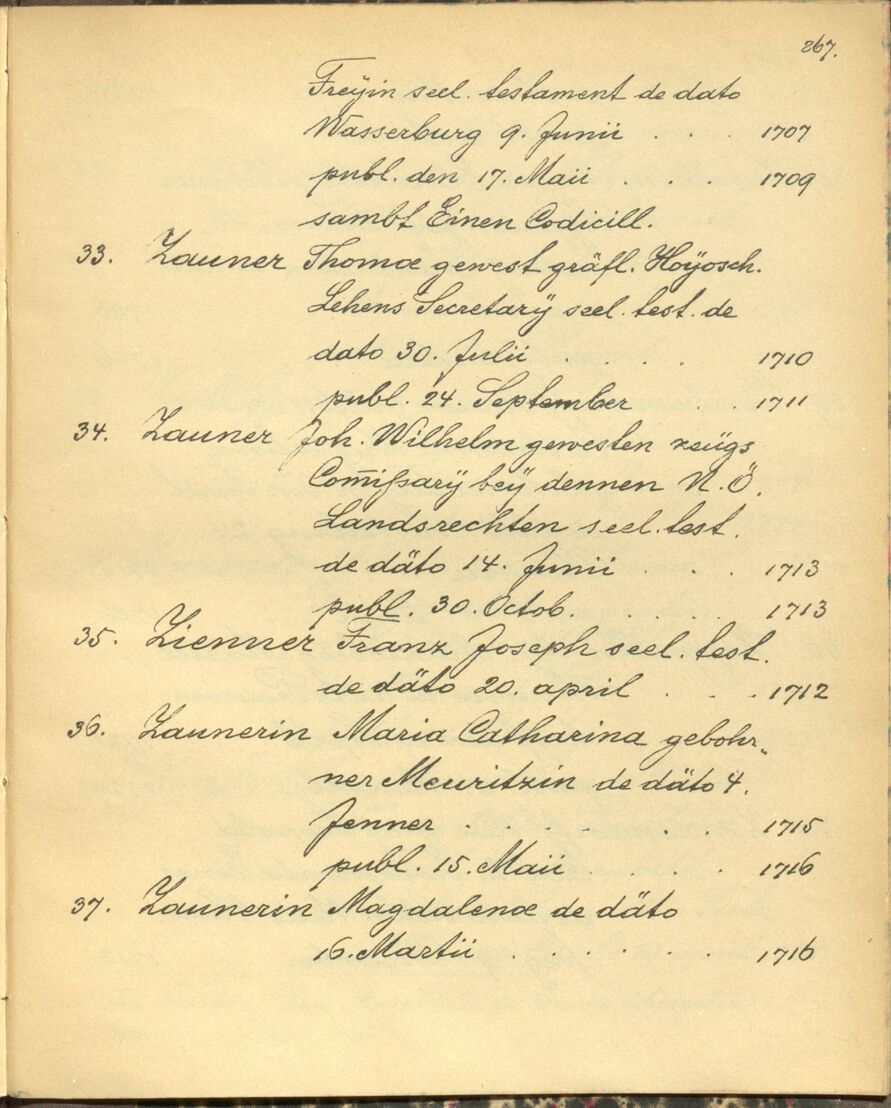 267.
Freÿin seel. testament de dato
Wasserburg 9. Junii . . . 1707
publ. den 17. Maii . . . 1709
sambt Einen Codicill.
33. Zauner Thomæ gewest gräfl. Hoÿosch.
Lehens Secretarÿ seel. test. de
dato 30. Julii . . . . 1710
publ. 24. September . . 1711
34. Zauner Joh. Wilhelm gewesten zeügs
Com̅ißarÿ beÿ dennen N. Ö.
Landsrechten seel. test.
de däto 14. Junii . . . 1713
publ. 30. Octob. . . . . 1713
35. Zienner Franz Joseph seel. test.
de däto 20. april . . . 1712
36. Zaunerin Maria Catharina gebohr„
ner Meuritzin de däto 4.
Jenner . . . . . 1715
publ. 15. Maii . . . . 1716
37. Zaunerin Magdalenæ de däto
16. Martii . . . . . . 1716